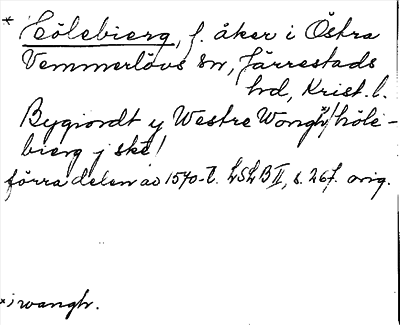 * Hölebierg, f. åker i Östra
Vemmerlövs sn, Järrestads
hd, Krist. l.
Bygiordt y Westre Wongh/höle-
bierg j ske/
förra delen av 1570-t. LSLB II, s. 267. orig.
* i wangh.